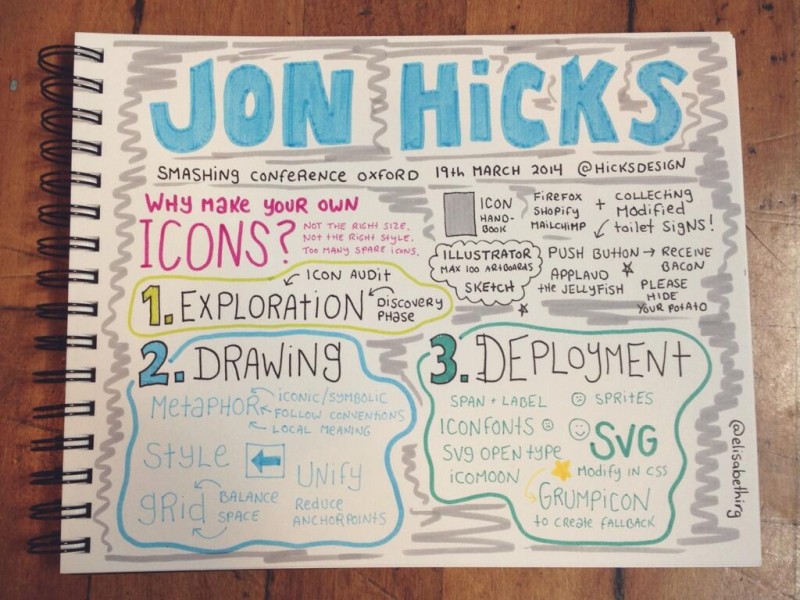 JON HiCKS
SMASHING CONFERENCE OXFORD 19th MARCH 2014 @HICKSDESIGN
WHY MAKE YOUR OWN
ICONS?
NOT THE RIGHT SIZE,
NOT THE RIGHT STYLE.
TOO MANY SPARE ICONS.
ICON
HAND-
BOOK
FIREFOX
SHOPIFY
MAILCHIMP
+ COLLECTING
Modified
toilet SIGNS!
ILLUSTRATOR
MAX 100 ARTBOARDS
SKETCH
PUSH BUTTON → RECEIVE
BACON
APPLAUD
the JELLYFISH
PLEASE
HIDE
YOUR POTATO
ICON AUDIT
1. EXPLORATION
DISCOVERY
PHASE
2. DRAWING
METAPHOR
ICONIC/SYMBOLIC
FOLLOW CONVENTIONS
LOCAL MEANING
STYLE
UNIFY
REDUCE
ANCHORPOINTS
gRid
BALANCE
SPACE
3. DEPLOYMENT
SPAN + LABEL
SPRITES
ICONFONTS
SVG
SVG OPEN TYPE
MODIFY IN CSS
ICOMOON
GRUMPICON
to CREATE FALLBACK
@elisabethirg